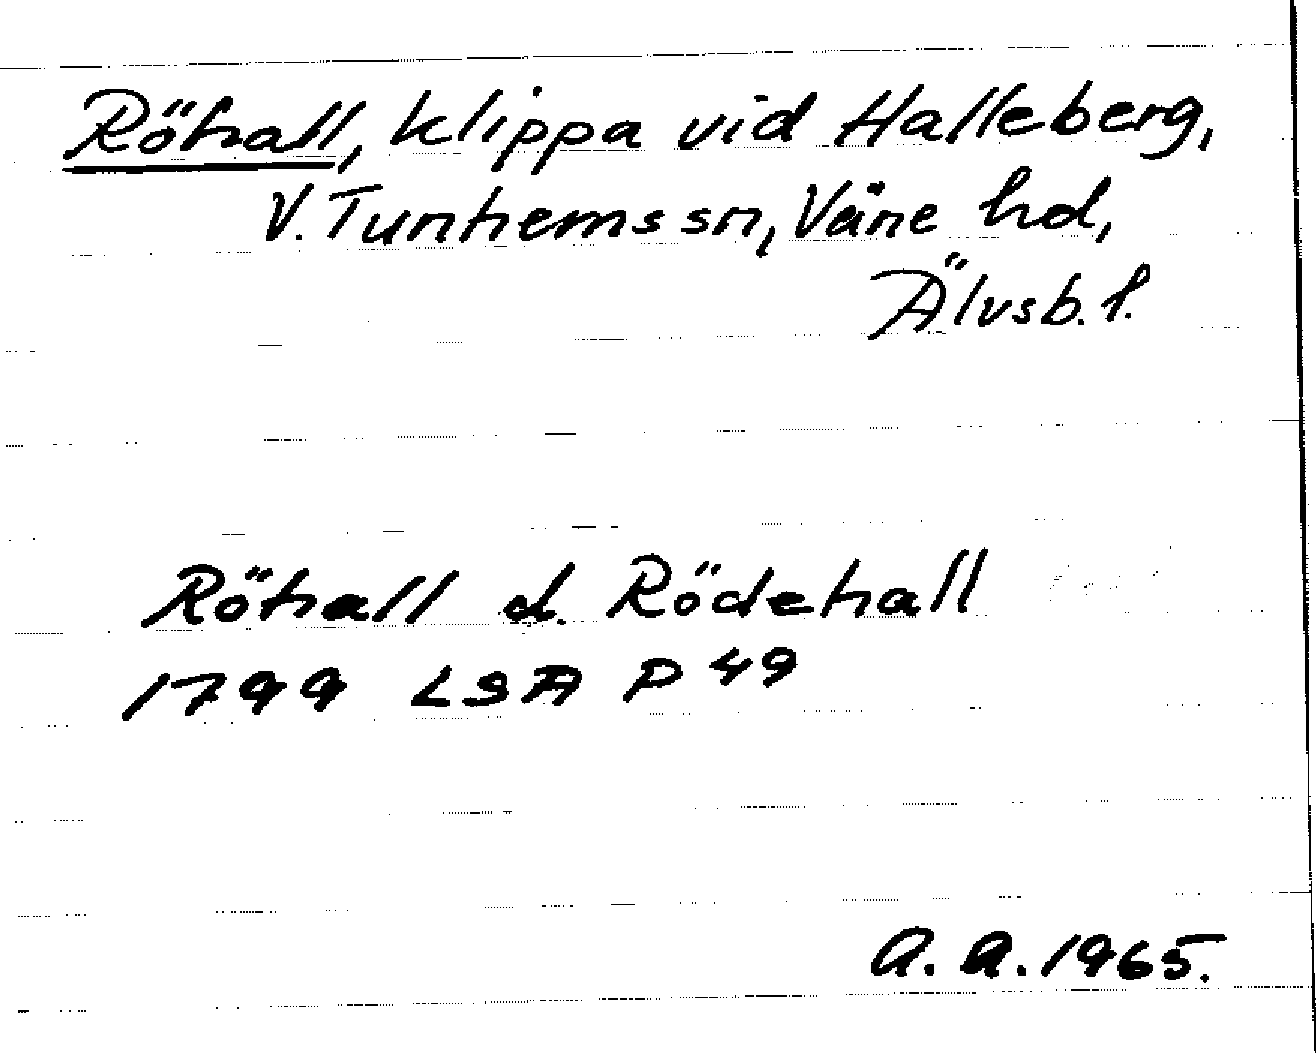 Röhall, klippa vid Halleberg,
V. Tunhems sn, Väne hd,
Älvsb. l.
Röhall d. Rödehall
1799 LSA P 49
A. A. 1965.